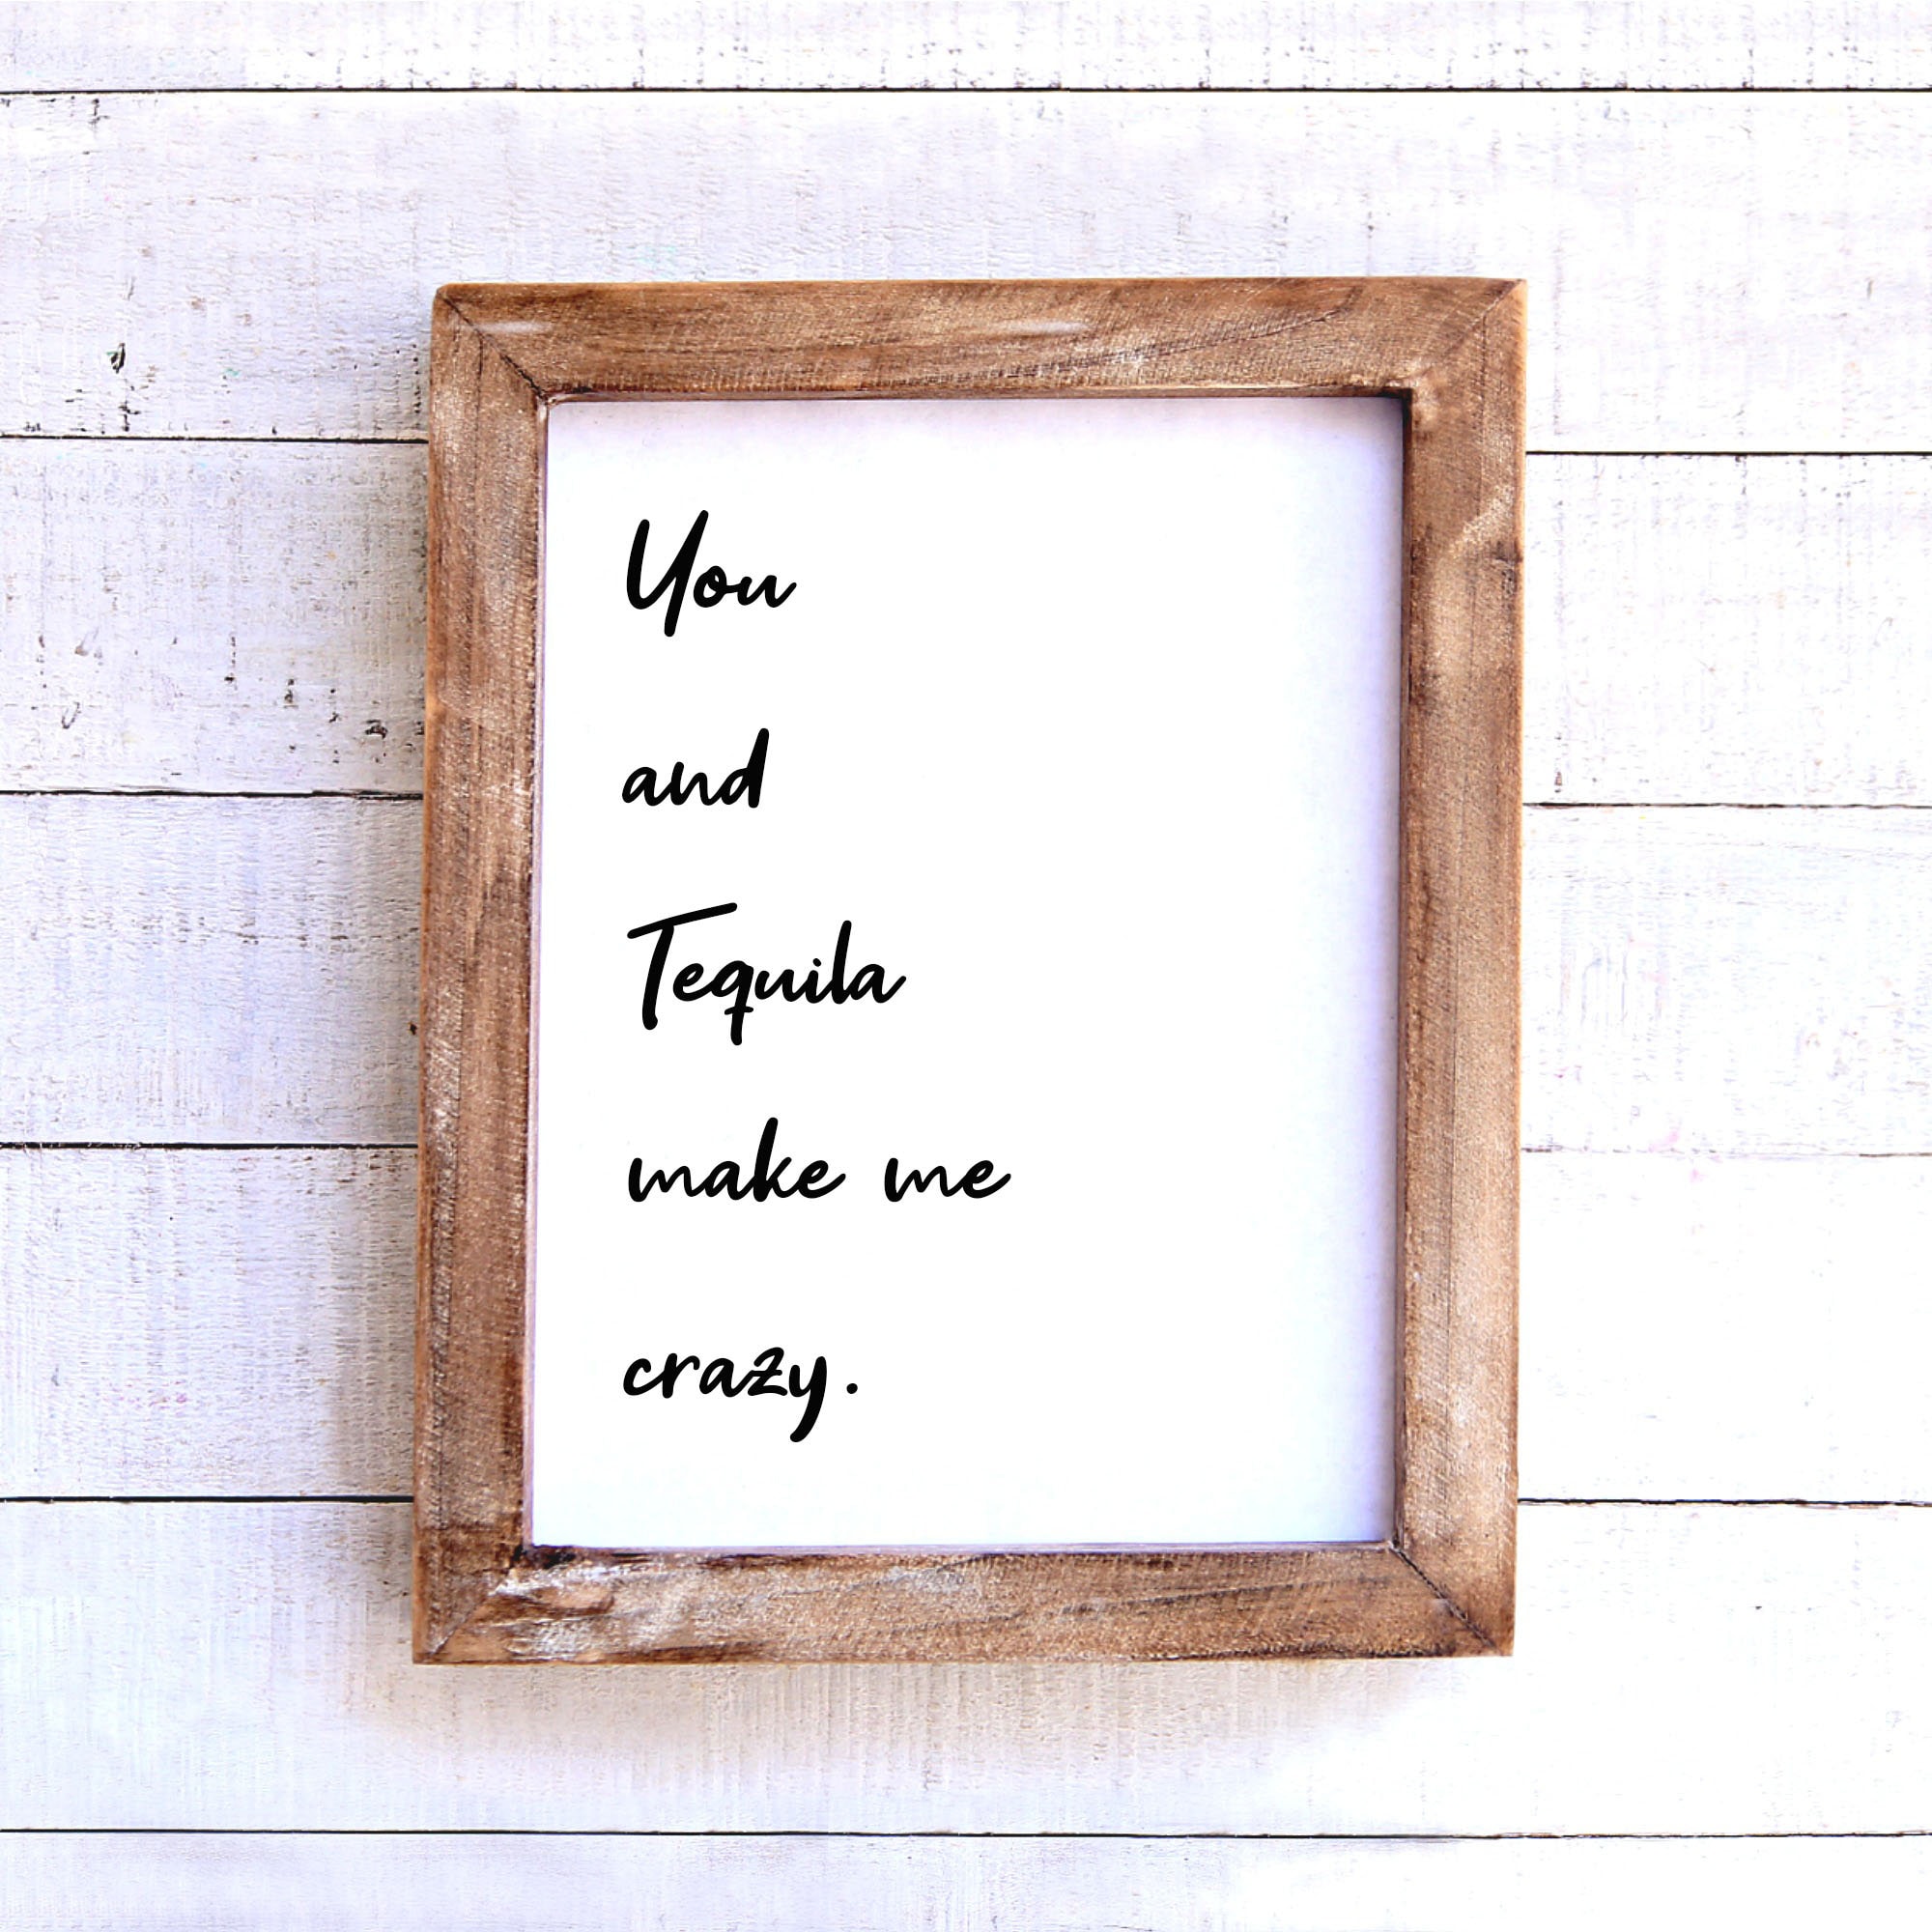 You
and
Tequila
make me
crazy.